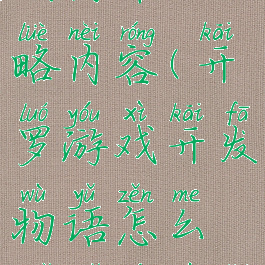 lüè nèi róng kāi
略内容(开
luó yóu xì kāi fā
罗游戏开发
wù yǔ zěn me
物语怎么